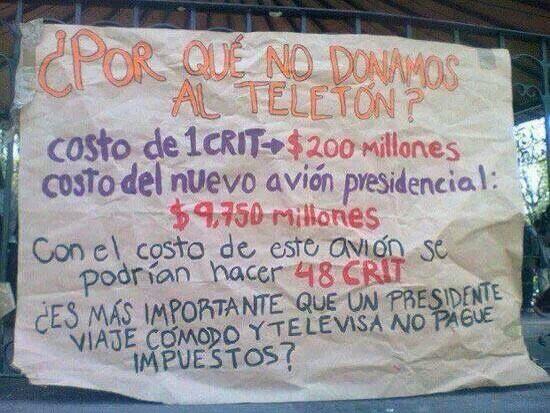 ¿POR QUÉ NO DONAMOS
AL TELETÓN?
costo de 1CRIT→$200 millones
costo del nuevo avión presidencial:
$9,750 millones
Con el costo de este avión se
podrían hacer 48 CRIT
¿ES MÁS IMPORTANTE QUE UN PRESIDENTE
VIAJE CÓMODO Y TELEVISA NO PAGUE
IMPUESTOS?